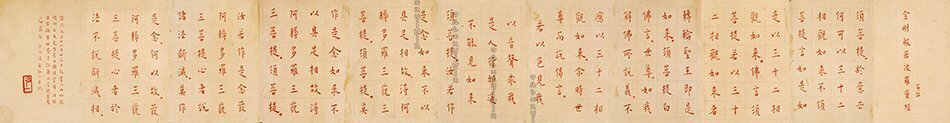 金剛般若波羅蜜經
須菩提於意云
何可以三十二
相觀如來不須
菩提言如是如
是以三十二相
觀如來佛言須
菩提若以三十
二相觀如來者
轉輪聖王即是
如來須菩提白
佛言世尊如我
解佛所說義不
應以三十二相
觀如來爾時世
尊而說偈言
若以色見我
以音聲求我
是人行邪道
不能見如來
須菩提汝若作
是念如來不以
具足相故得阿
耨多羅三藐三
菩提須菩提莫
作是念如來不
以具足相故得
阿耨多羅三藐
三菩提須菩提
汝若作是念發
阿耨多羅三藐
三菩提心者說
諸法斷滅莫作
是念何以故發
阿耨多羅三藐
三菩提心者於
法不說斷滅相